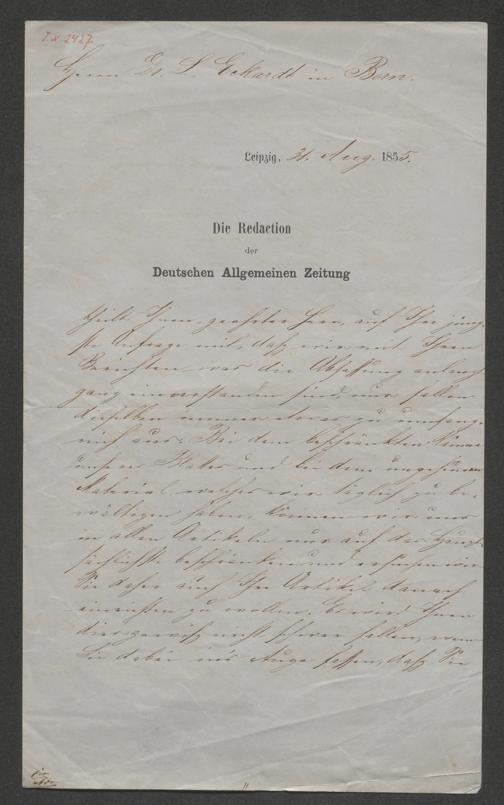 I N 2427
Herrn Dr. L. Eckardt in Bern.
Leipzig, 31. Aug. 1855.
Die Redaction
der
Deutschen Allgemeinen Zeitung
theilt Ihnen, geehrter Herr, auf Ihre jüng-
ste Anfrage mit, daß wir mit Ihren
Berichten, was die Abfassung anlangt
ganz einverstanden sind, nur fallen
dieselben immer etwas zu umfang-
reich aus. Bei dem beschränkten Raume
unseres Blattes und bei dem ungeheuren
Material welches wir täglich zu be-
wältigen haben, können wir uns
in allen Artikeln nur auf das Haupt-
sächlichste beschränken und ersuchen wir
Sie daher auch Ihre Artikel darnach
einrichten zu wollen. Es wird Ihnen
dies gewiß nicht schwer fallen, wenn
Sie dabei in's Auge fassen, daß Sie